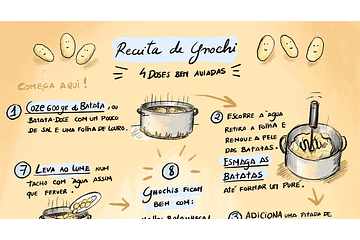 Receita de Gnochi
4 DOSES BEM AVIADAS
COMEÇA AQUI!
1 COZE 600gr de BATATA, OU
BATATA-DOCE COM UM POUCO
DE SAL E UMA FOLHA DE LOURO.
2 ESCORRE A ÁGUA
RETIRA A FOLHA E
REMOVE A PELE
DAS BATATAS.
ESMAGA AS
BATATAS
ATÉ FORMAR UM PURÉ.
7 LEVA AO LUME NUM
TACHO COM ÁGUA ASSIM
QUE FERVER.
8
GNOCHIS FICAM
BEM COM:
3 ADICIONA UMA PITADA DE